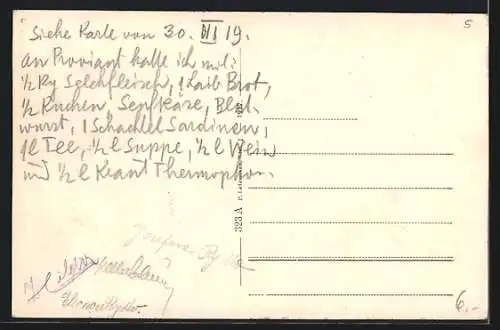 Siehe Karte von 30. VII 19.
An Proviant hatte ich mit:
1/2 Kg Selchfleisch, 1 Laib Brot,
1/2 Kuchen, Senfkäse, Blut-
wurst, 1 Schachtel Sardinen,
1 l Tee, 1/2 l Suppe, 1/2 l Wein
und 1/2 l Kraut Thermophor.
323 A
5
6,-